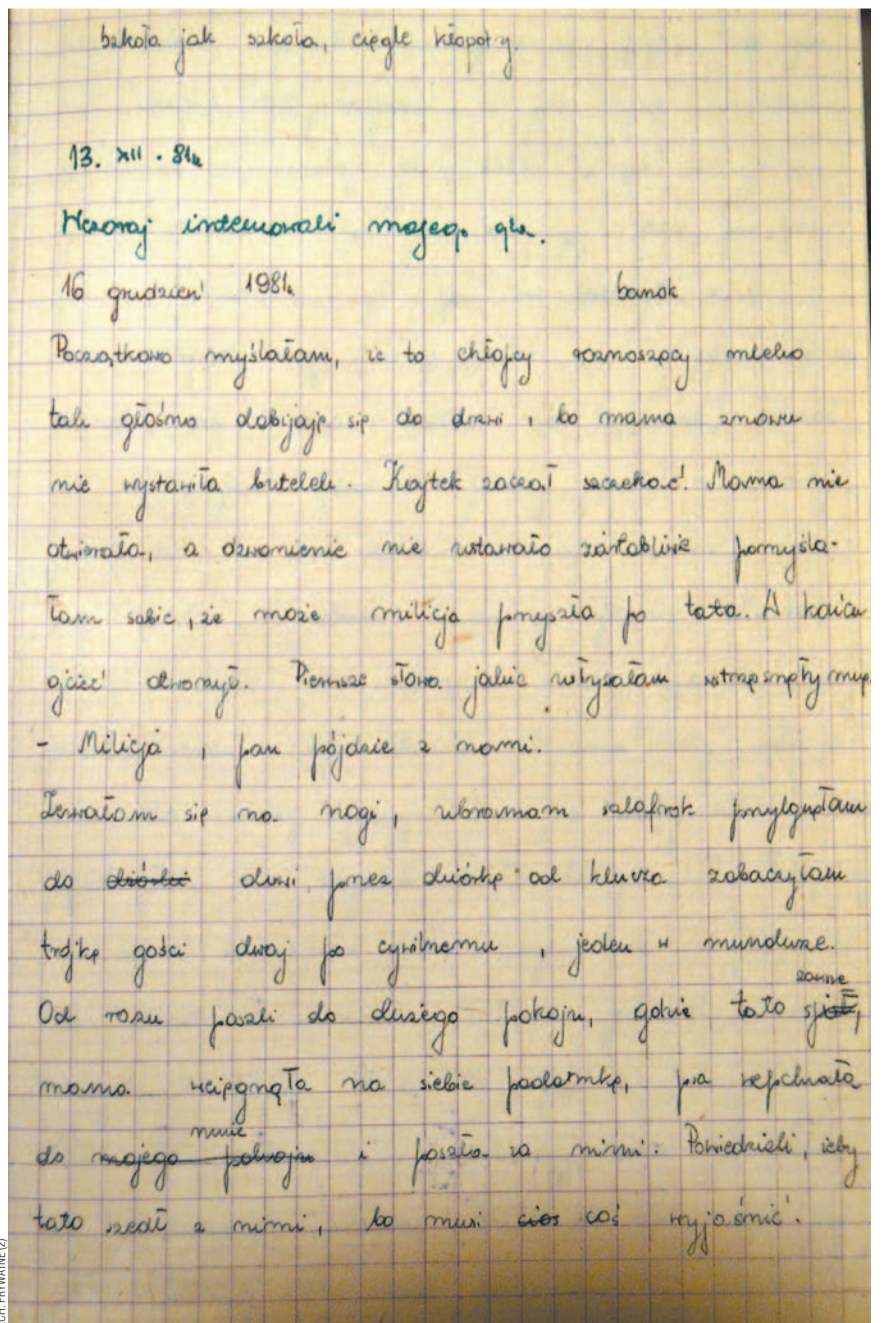 Szkoła jak szkoła, ciągle kłopoty.
13. XII. 81r.
Wczoraj internowali mojego
16 grudzień 1981r. Sanok
Początkowo myślałam, że to chłopcy roznoszący mleko
tak głośno dobijają się do drzwi, bo mama znowu
nie wystawiła butelek. Kajtek zaczął szczekać. Mama nie
otwierała, a dzwonienie nie ustawało żartobliwie pomyśla-
łam sobie, że może milicja przyszła po tata. W końcu
ojciec otworzył. Pierwsze słowa jakie usłyszałam wstrząsnęły mną
- Milicja, pan pójdzie z nami.
Zerwałam się na nogi, szlafrok przylgnęłam
do dziórki drzwi przez dziórkę od klucza zobaczyłam
trójkę gości dwaj po cywilnemu, jeden w mundurze.
zawsze
Od razu poszli do dużego pokoju, gdzie tato śpi,
mama wciągnęła na siebie podomkę, psa wepchnęła
mnie
do mojego pokoju i poszła za nimi. Powiedzieli, żeby
tato szedł z nimi, bo musi cios coś wyjaśnić.
CH. PRYWATNE (2)